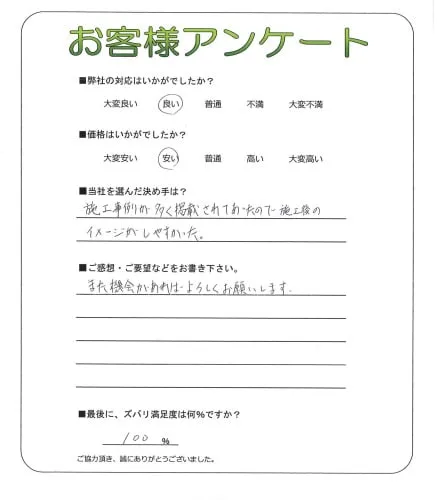 お客様アンケート
■弊社の対応はいかがでしたか?
大変良い 良い 普通 不満 大変不満
■価格はいかがでしたか?
大変安い 安い 普通 高い 大変高い
■当社を選んだ決め手は?
施工事例が多く掲載されてあったので施工後の
イメージがしやすかった。
■ご感想・ご要望などをお書き下さい。
また機会があればよろしくお願いします.
■最後に、ズバリ満足度は何%ですか?
100 %
ご協力頂き、誠にありがとうございました。